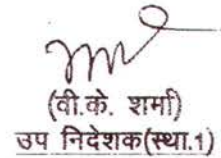 (वी.के. शर्मा)
उप निदेशक(स्था.1)